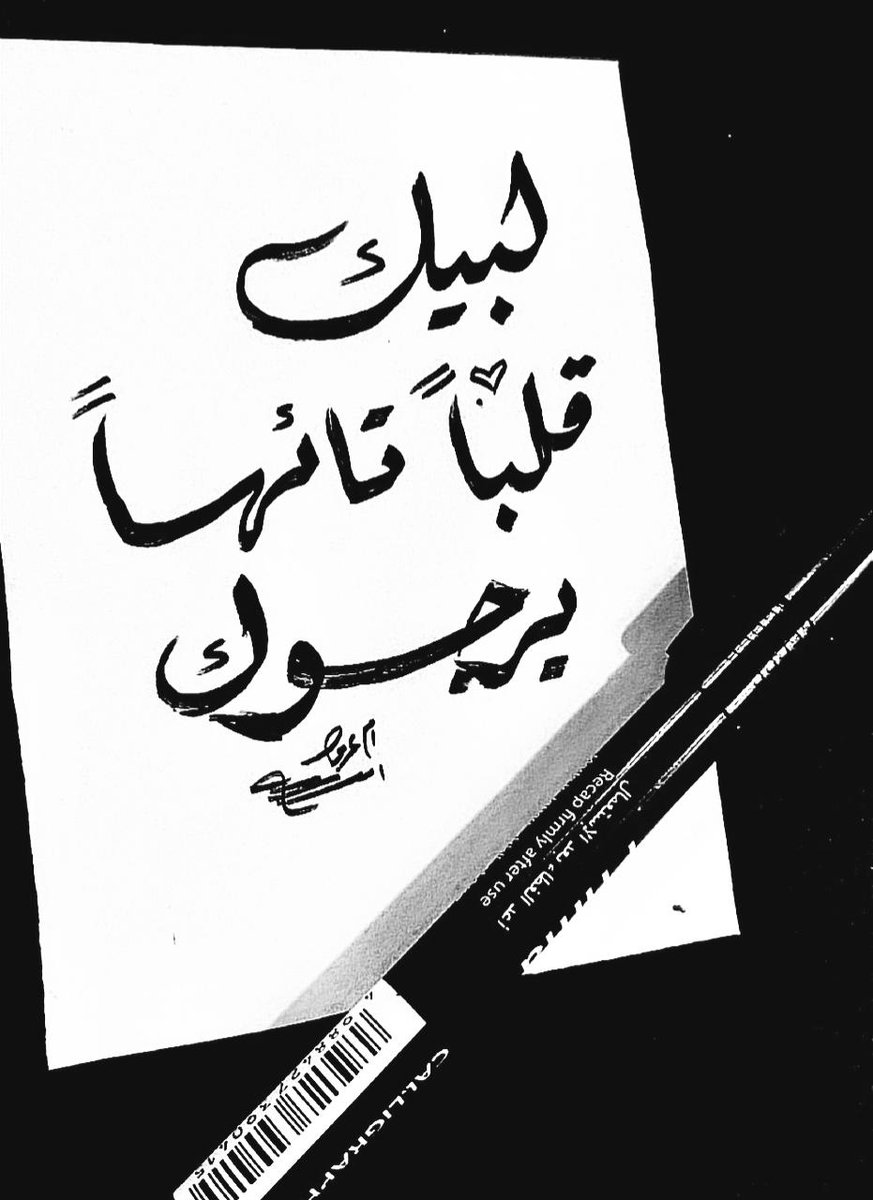 لبيك
قلباً تائهاً
يرجوك
Recap firmly after use
أعد الغطاء بعد الإستعمال
CALLIGRAPH